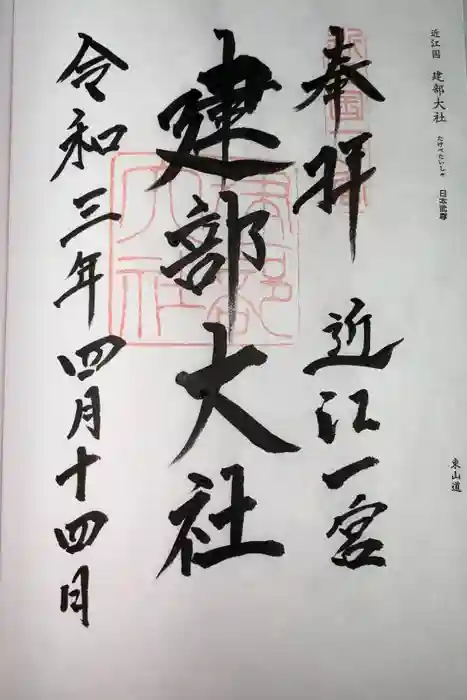 近江国 建部大社
たけべたいしゃ
日本武尊
東山道
奉拝 近江一宮
建部大社
令和三年四月十四日
建部大社